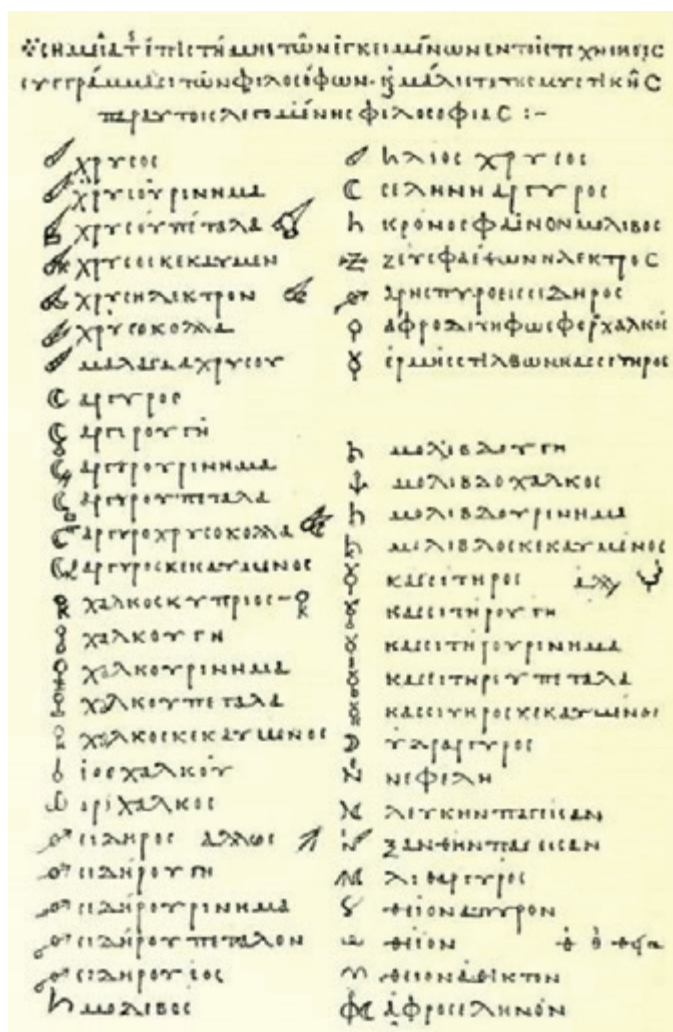 σημεῖα τῆς ἐπιστήμης τῶν ἐγκειμένων ἐν τοῖς τεχνικοῖς
συγγράμμασι τῶν φιλοσόφων καὶ μάλιστα τῆς μυστικῆς
παρ αὐτοῖς λεγομένης φιλοσοφίας :-
χρυσος
χρυσού ρινημα
χρυσού πέταλα
χρυσος κεκαυμεν
χρυσηλεκτρον
χρυσοκολλα
μαλαγμα χρυσου
αργυρος
αργυρου γη
αργυρου ρινημα
αργυρου πεταλα
αργυροχρυσοκολλα
αργυρος κεκαυμενος
χαλκος κυπριος
χαλκου γη
χαλκου ρινημα
χαλκου πεταλα
χαλκος κεκαυμενος
ιος χαλκού
οριχαλκος
σιδηρος αλλως
σιδήρου γη
σιδήρου ρινημα
σιδήρου πεταλον
σιδήρου ιος
μολιβος
ηλιος χρυσος
σεληνη αργυρος
κρονος φαινον μολιβος
ζευς φαεθων ηλεκτρος
αρης πυροεις σιδηρος
αφροδιτη φωσφορ χαλκος
ερμης στιλβων κασσιτηρος
μολιβδου γη
μολιβδοχαλκος
μολιβδου ρινημα
μολιβδος κεκαυμένος
κασσιτηρος αλλ
κασσιτήρου γη
κασσιτήρου ρινημα
κασσιτηρου πεταλα
κασσιτηρος κεκαυμένος
υδραργυρος
νεφελη
λευκην παγεισαν
ξανθην παγεισαν
λιθαργυρος
θειον απυρον
θειον
θειον αθικτον
αφροσεληνον